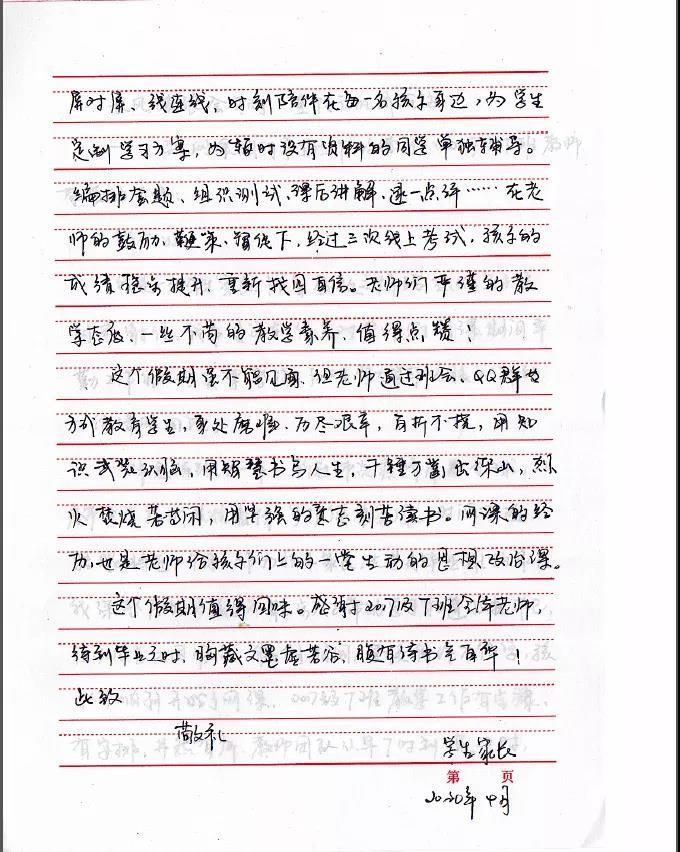 屏对屏、线连线,时刻陪伴在每一名孩子身边,为学生
定制学习方案,为暂时没有资料的同学单独辅导。
编排套题、组织测试、课后讲解、逐一点评……在老
师的鼓励、鞭策、督促下,经过三次线上考试,孩子的
成绩稳步提升、重新找回自信。老师们严谨的教
学态度、一丝不苟的教学素养,值得点赞!
这个假期虽不能见面,但老师通过班会、QQ群等
方式教育学生,身处磨难、历尽艰辛,百折不挠,用知
识武装头脑,用智慧书写人生,千锤万凿出深山,烈
火焚烧若等闲,用坚强的意志刻苦读书。网课的经
历,也是老师给孩子们上的一堂生动的思想政治课。
这个假期值得回味。感谢2007级7班全体老师,
待到毕业之时,胸藏文墨虚若谷,腹有诗书气自华!
此致
敬礼
学生家长
第 页
2020年4月